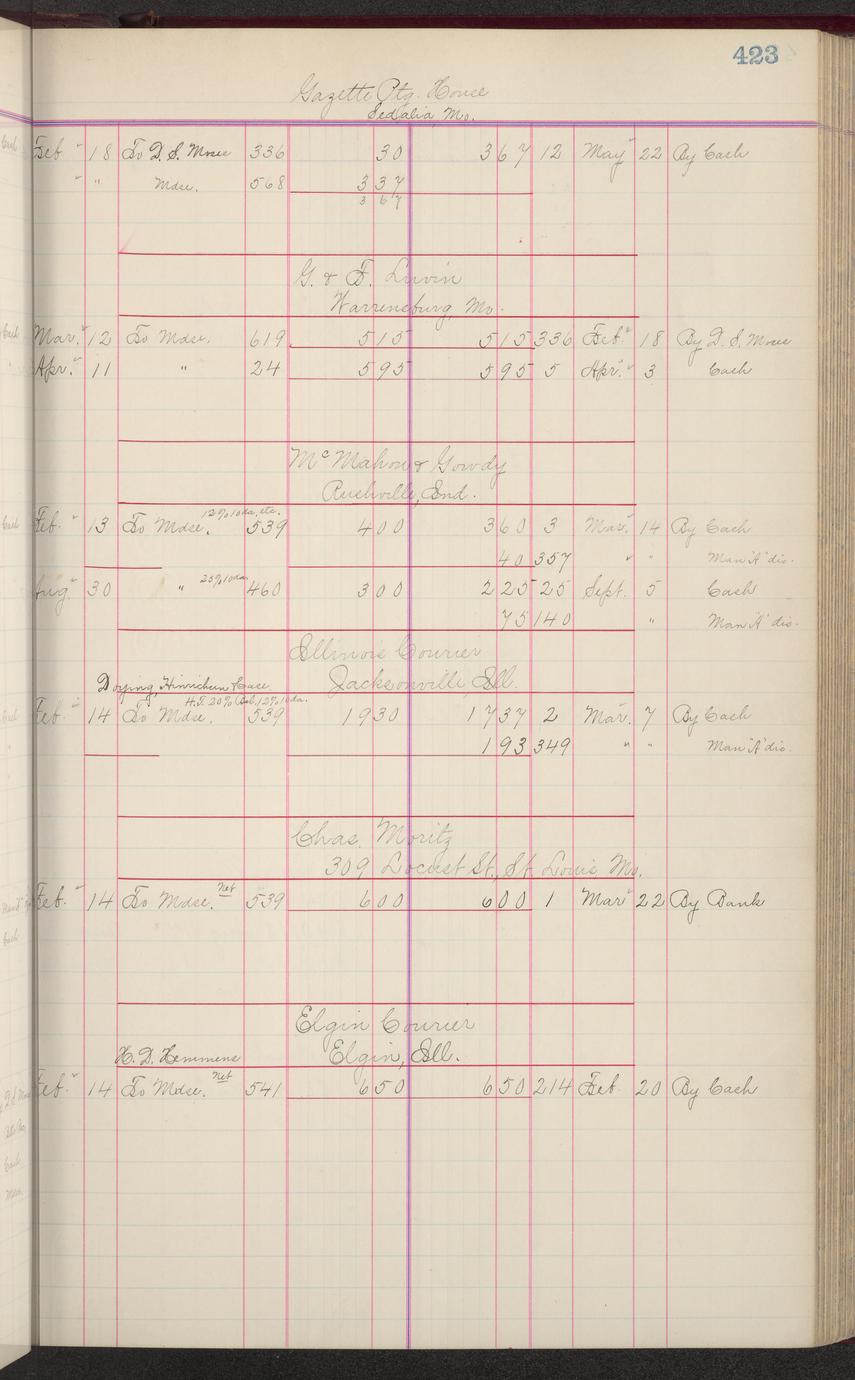 423
Gazette Ptg. House
Sedalia, Mo.
Feb. " 18 To D. S. Morse 336 30 367 12 May 22 By Cash
" " Mdse. 568 337
367
G. & F.
Warrensburg, Mo.
Mar. 12 To Mdse. 619 515 515 336 Feb. 18 By D. S. Morse
Apr. 11 " 24 595 595 5 Apr. 3 Cash
McMahon & Gowdy
Rushville, Ind.
12% 10 da. etc.
Feb. 13 To Mdse. 539 400 360 3 Mar. 14 By Cash
40 357 " " Man "A" dis.
Aug. 30 " 25% 10 da. 460 300 225 25 Sept. 5 Cash
75 140 " Man "A" dis.
Illinois Courier
Doying, Hinrichsen & Case. Jacksonville, Ill.
H.T. 20% Bal. 12% 10 da.
Feb. 14 To Mdse. 539 1930 1737 2 Mar. 7 By Cash
193 349 " " Man "A" dis.
Chas. Moritz
309 Locust St., St. Louis Mo.
Feb. 14 To Mdse. Net 539 600 600 1 Mar 22 By Bank
Elgin Courier
H. D. Hemmens Elgin, Ill.
Feb. 14 To Mdse. Net 541 650 650 214 Feb. 20 By Cash